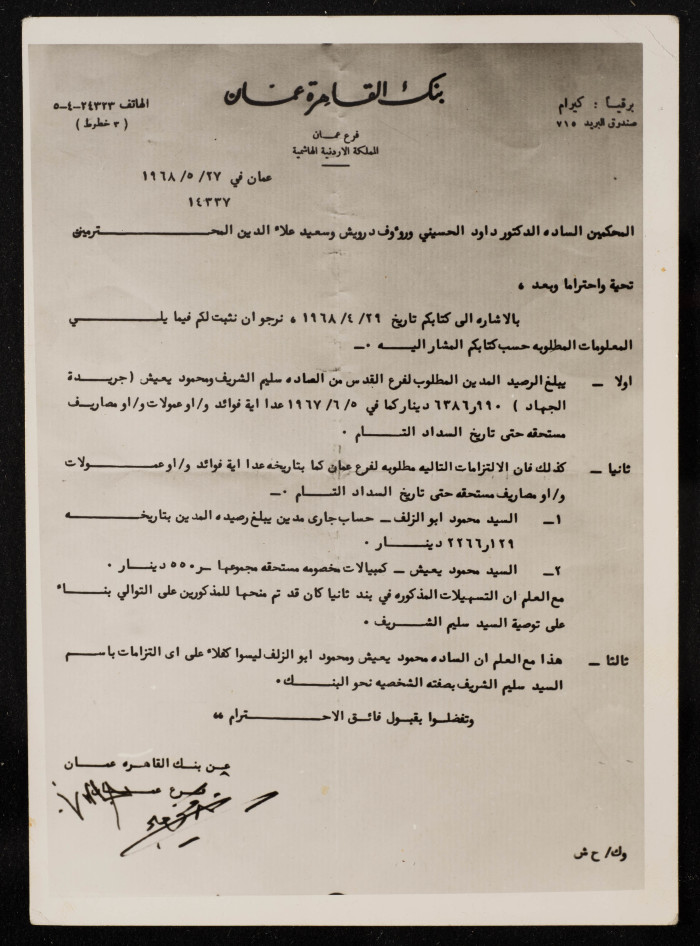 بنك القاهرة عمان
برقياً : كيرام
صندوق البريد ٧١٥
الهاتف ٢٤٣٢٣-٤-٥
( ٣ خطوط )
فرع عمان
المملكة الاردنية الهاشمية
عمان في ٢٧/ ٥/ ١٩٦٨
١٤٣٣٧
المحكمين الساده الدكتور داود الحسيني وروءوف درويش وسعيد علاء الدين المحترمين
تحية واحتراما وبعد ،
بالاشاره الى كتابكم تاريخ ٢٩/ ٤/ ١٩٦٨ ، نرجو ان نثبت لكم فيما يلي
المعلومات المطلوبه حسب كتابكم المشار اليه ٠ــ
اولا ــ يبلغ الرصيد المدين المطلوب لفرع القدس من الساده سليم الشريف ومحمود يعيش ( جريدة
الجهاد ) ٩٩٠ر٦٣٨٦ دينار كما في ٥/ ٦/ ١٩٦٧ عدا اية فوائد و/او عمولات و/او مصاريف
مستحقه حتى تاريخ السداد التام ٠
ثانيا ــ كذلك فان الالتزامات التاليه مطلوبه لفرع عمان كما بتاريخه عدا اية فوائد و/او عمولات
و/او مصاريف مستحقه حتى تاريخ السداد التام ٠ــ
١ــ السيد محمود ابو الزلف ــ حساب جارى مدين يبلغ رصيده المدين بتاريخه
١٢٩ر٢٢٦٦ دينار ٠
٢ــ السيد محمود يعيش ــ كمبيالات مخصومه مستحقه مجموعها ــر٥٥٠ دينار ٠
مع العلم ان التسهيلات المذكوره في بند ثانيا كان قد تم منحها للمذكورين على التوالي بناء
على توصية السيد سليم الشريف ٠
ثالثا ــ هذا مع العلم ان الساده محمود يعيش ومحمود ابو الزلف ليسوا كفلاء على اى التزامات باسم
السيد سليم الشريف بصفته الشخصيه نحو البنك ٠
وتفضلوا بقبول فائق الاحترام ،،
عن بنك القاهره عمان
فرع
وك/ ح ش